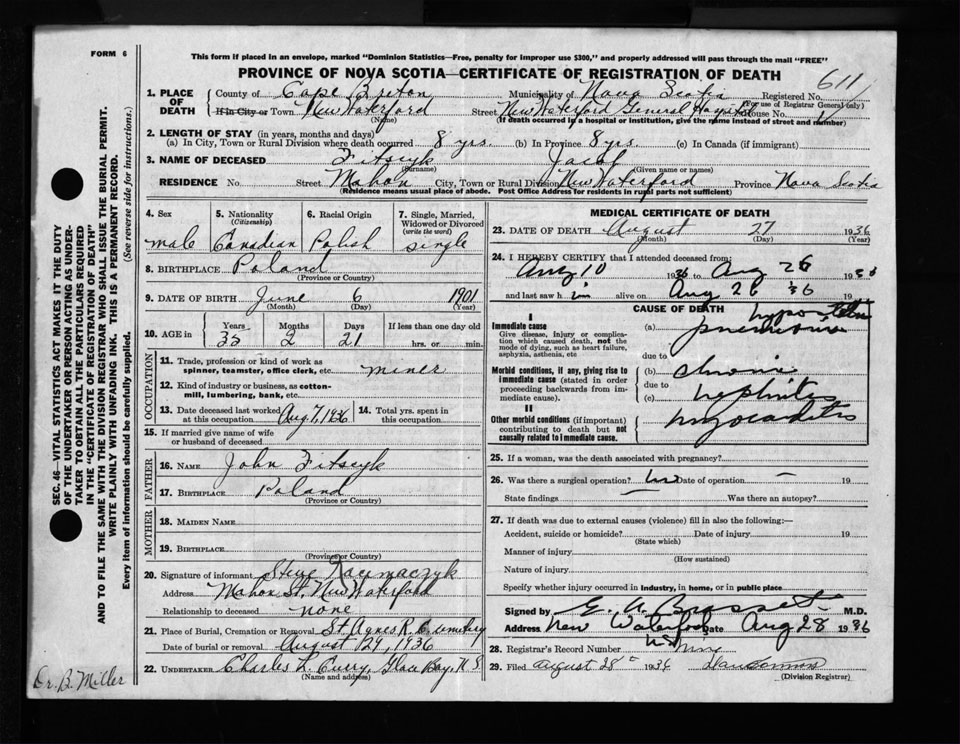 FORM 6
This form if placed in an envelope, marked "Dominion Statistics—Free, penalty for improper use $300," and properly addressed will pass through the mail "FREE"
PROVINCE OF NOVA SCOTIA—CERTIFICATE OF REGISTRATION OF DEATH
611
1. PLACE OF DEATH
County of Cape Breton Municipality of Nova Scotia Registered No.
(For use of Registrar General only)
If in City or Town New Waterford Street New Waterford General Hospital House No.
(Name) (If death occurred in a hospital or institution, give the name instead of street and number)
2. LENGTH OF STAY (in years, months and days)
(a) In City, Town or Rural Division where death occurred 8 yrs. (b) In Province 8 yrs. (c) In Canada (if immigrant)
3. NAME OF DECEASED Fitscyk Jacob
(Surname) (Given name or names)
RESIDENCE No. Street Mahon City, Town or Rural Division New Waterford Province Nova Scotia
(Residence means usual place of abode. Post Office Address for residents in rural parts not sufficient)
4. Sex male
5. Nationality (Citizenship) Canadian
6. Racial Origin Polish
7. Single, Married, Widowed or Divorced (write the word) single
8. BIRTHPLACE Poland
(Province or Country)
9. DATE OF BIRTH June 6 1901
(Month) (Day) (Year)
10. AGE in Years Months Days If less than one day old
35 2 21 hrs. or min.
OCCUPATION
11. Trade, profession or kind of work as spinner, teamster, office clerk, etc. miner
12. Kind of industry or business, as cotton-mill, lumbering, bank, etc.
13. Date deceased last worked at this occupation Aug 7, 1936
14. Total yrs. spent in this occupation
15. If married give name of wife or husband of deceased
FATHER
16. NAME John Fitscyk
17. BIRTHPLACE Poland
(Province or Country)
MOTHER
18. MAIDEN NAME
19. BIRTHPLACE
(Province or Country)
20. Signature of informant Steve
Address Mahon St. New Waterford
Relationship to deceased none
21. Place of Burial, Cremation or Removal St Agnes R. C. Cemetery
Date of burial or removal August 29, 1936
22. UNDERTAKER Charles L. Curry, Glace Bay, N.S.
(Name and address)
MEDICAL CERTIFICATE OF DEATH
23. DATE OF DEATH August 27 1936
(Month) (Day) (Year)
24. I HEREBY CERTIFY that I attended deceased from:
Aug 10 1936 to Aug 26 1936
and last saw him alive on Aug 26 36 19
CAUSE OF DEATH
I
Immediate cause
Give disease, injury or complication which caused death, not the mode of dying, such as heart failure, asphyxia, asthenia, etc
(a) hypostatic pneumonia
due to
Morbid conditions, if any, giving rise to immediate cause (stated in order proceeding backwards from immediate cause).
(b) chronic
due to
(c) nephritis
II
Other morbid conditions (if important) contributing to death but not causally related to immediate cause.
myocarditis
25. If a woman, was the death associated with pregnancy?
26. Was there a surgical operation? no Date of operation — 19
State findings — Was there an autopsy?
27. If death was due to external causes (violence) fill in also the following:—
Accident, suicide or homicide? Date of injury 19
(State which)
Manner of injury
(How sustained)
Nature of injury
Specify whether injury occurred in Industry, in home, or in public place
Signed by E. A. M.D.
Address New Waterford Date Aug 28 1936
28. Registrar's Record Number
29. Filed August 28th 1936
(Division Registrar)
Dr. B. Miller
SEC. 46—VITAL STATISTICS ACT MAKES IT THE DUTY
OF THE UNDERTAKER OR PERSON ACTING AS UNDER-
TAKER TO OBTAIN ALL THE PARTICULARS REQUIRED
IN THE "CERTIFICATE OF REGISTRATION OF DEATH"
AND TO FILE THE SAME WITH THE DIVISION REGISTRAR WHO SHALL ISSUE THE BURIAL PERMIT.
WRITE PLAINLY WITH UNFADING INK. THIS IS A PERMANENT RECORD.
Every item of information should be carefully supplied. (See reverse side for instructions.)